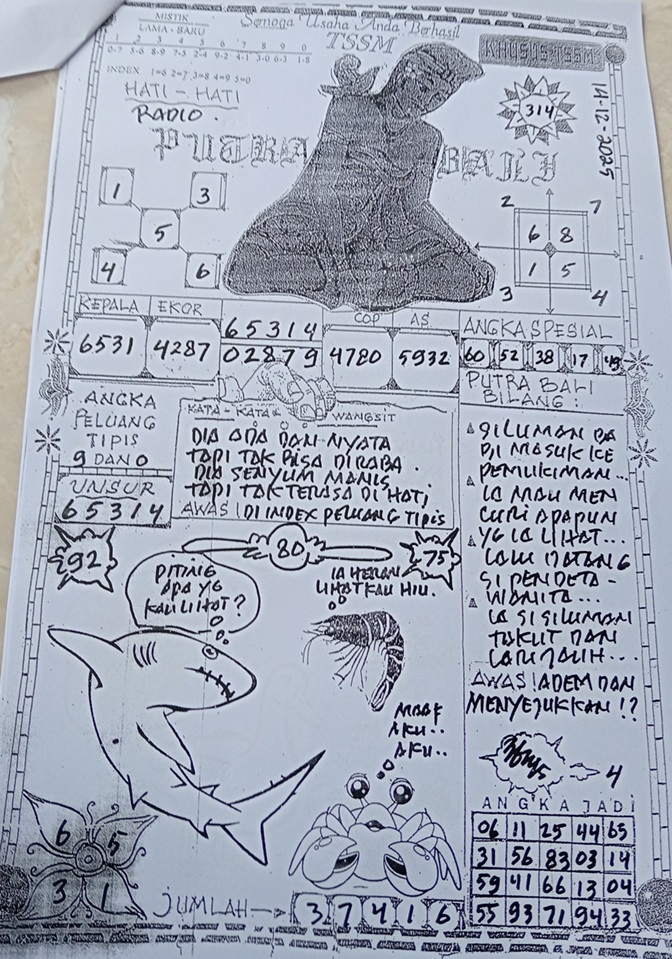 MISTIK
LAMA - BARU
1 2 3 4 5 6 7 8 9 0
0-7 5-6 8-9 7-5 2-4 9-2 4-1 3-0 6-3 1-8
INDEX 1=6 2=7 3=8 4=9 5=0
Semoga Usaha Anda Berhasil
TSSM
KHUSUS TSSM
HATI - HATI
RADIO.
314
14-12-2025
PUTRA BALI
1 3
5
4 6
2 7
6 8
1 5
3 4
KEPALA EKOR COP AS
6531 4287
65314
02879
4780 5932
ANGKA SPESIAL
60 52 38 17 49
ANGKA
PELUANG
TIPIS
9 DAN 0
UNSUR
65314
KATA - KATA WANGSIT
DIA ADA DAN NYATA
TAPI TAK BISA DIRABA.
DIA SENYUM MANIS
TAPI TAK TERASA DI HATI
AWAS! DI INDEX PELUANG TIPIS
PUTRA BALI
BILANG:
SILUMAN BA
BI MASUK KE
PEMUKIMAN...
IA MAU MEN
CURI APAPUN
YG IA LIHAT...
LALU DATANG
SI PENDETA-
WANITA...
LA SI SILUMAN
TAKUT DAN
LARI JAUH...
AWAS! ADEM DAN
MENYEJUKKAN !?
92
80
75
PITING
APA YG
KAU LIHAT?
IA HERAN
LIHAT KAU HIU.
MAAF
AKU..
AKU..
4
ANGKA JADI
06 11 25 44 65
31 56 83 03 14
59 41 66 13 04
55 93 71 94 33
6 5
3 1
JUMLAH
3 7 4 1 6